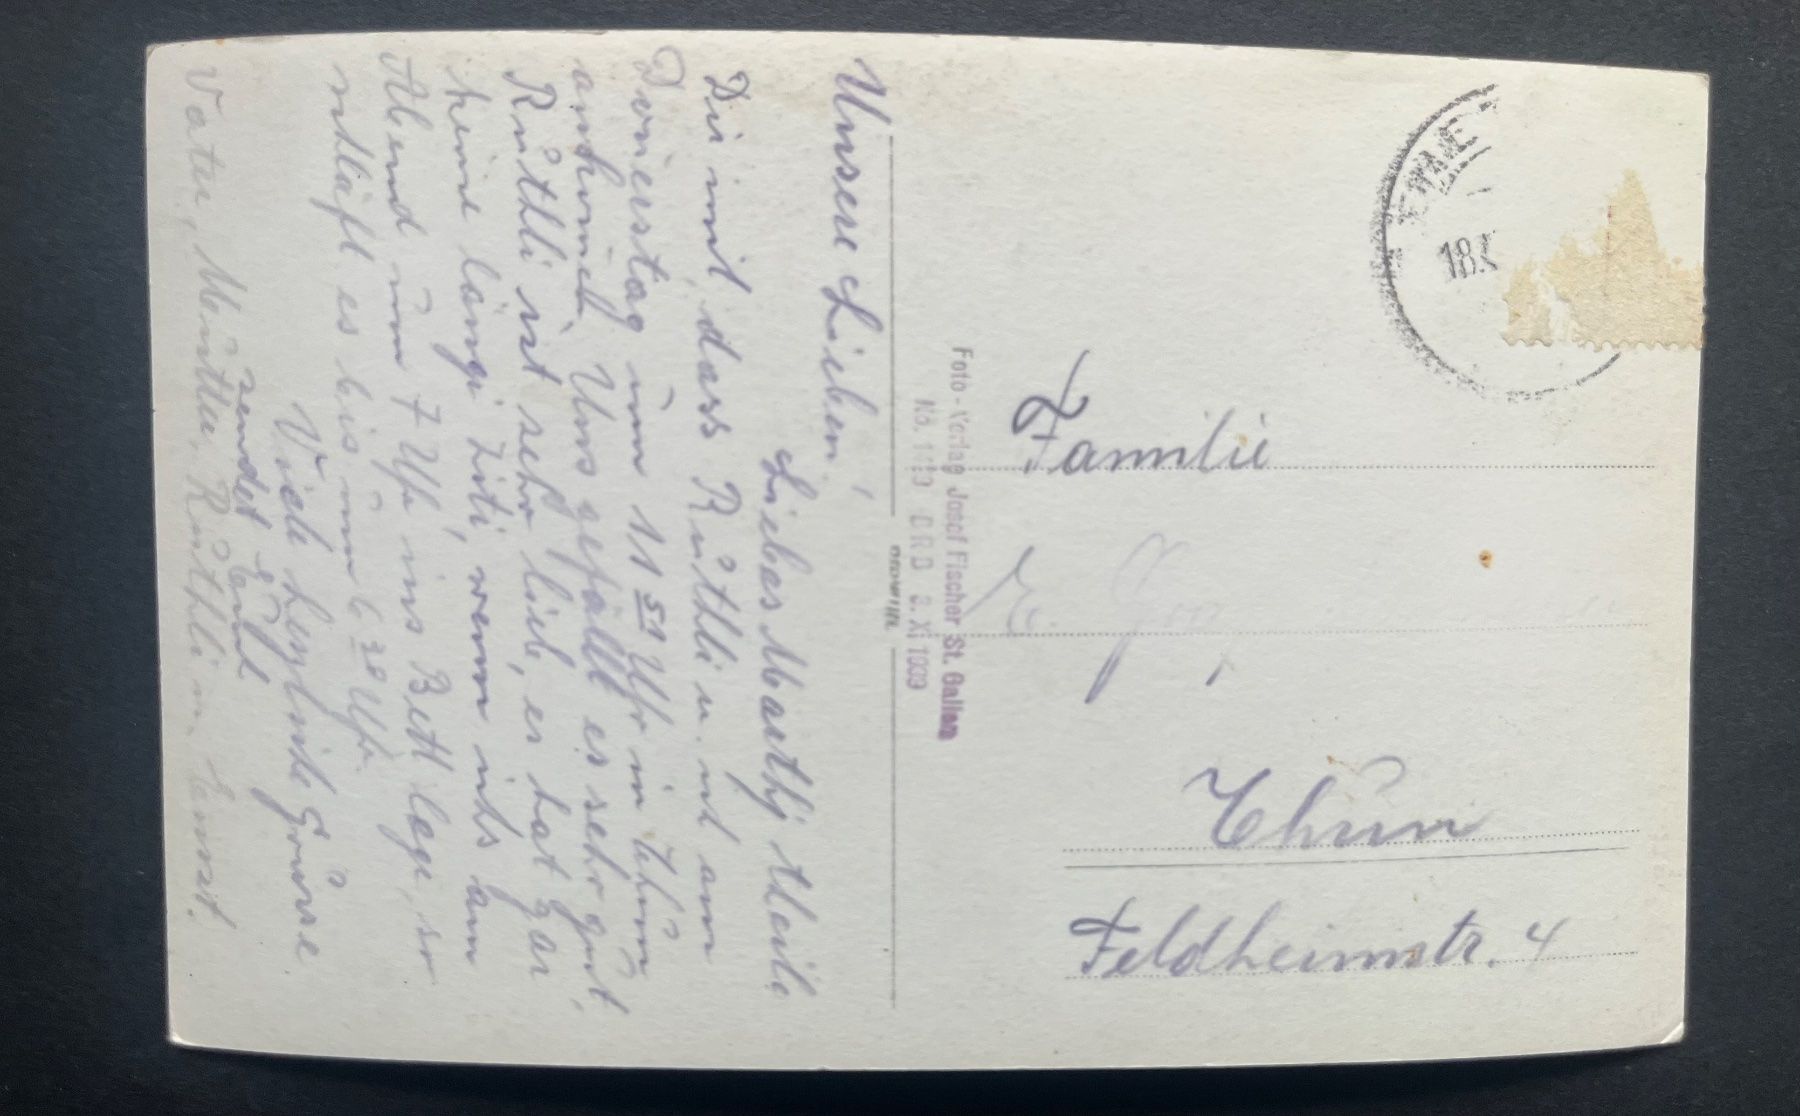 Unsere Lieben!
Liebes Marthj teile
Dir mit, dass Rüthli u. ich am
Donnerstag um 11 51 Uhr in Thun
ankomed. Uns gefällt es sehr guet,
Rüthli ist sehr lieb, es hat gar
keine längi Ziti, wenn ichs am
Abend um 7 Uhr ins Bett lege, so
schläft es bis um 6 30 Uhr.
Viele herzliche Grüsse
sendet Euch
Vater, Mutter, Rüthli u. Ernst.
Foto-Verlag Josof Fischer St. Gallen
No. BRB 3. XI 1939
18.
Familie
E.
Thun
Feldheimstr. 4